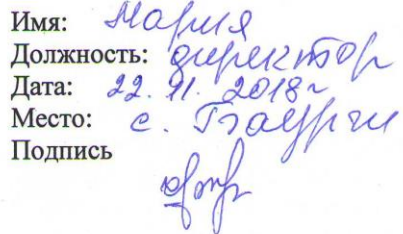 Имя: Мария
Должность: директор
Дата: 22. 11. 2018г
Место: с.
Подпись